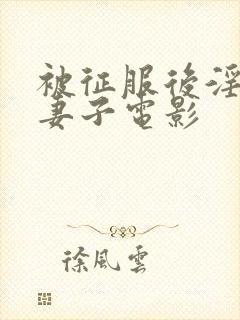 被征服後淫
妻子電影
徐風雲